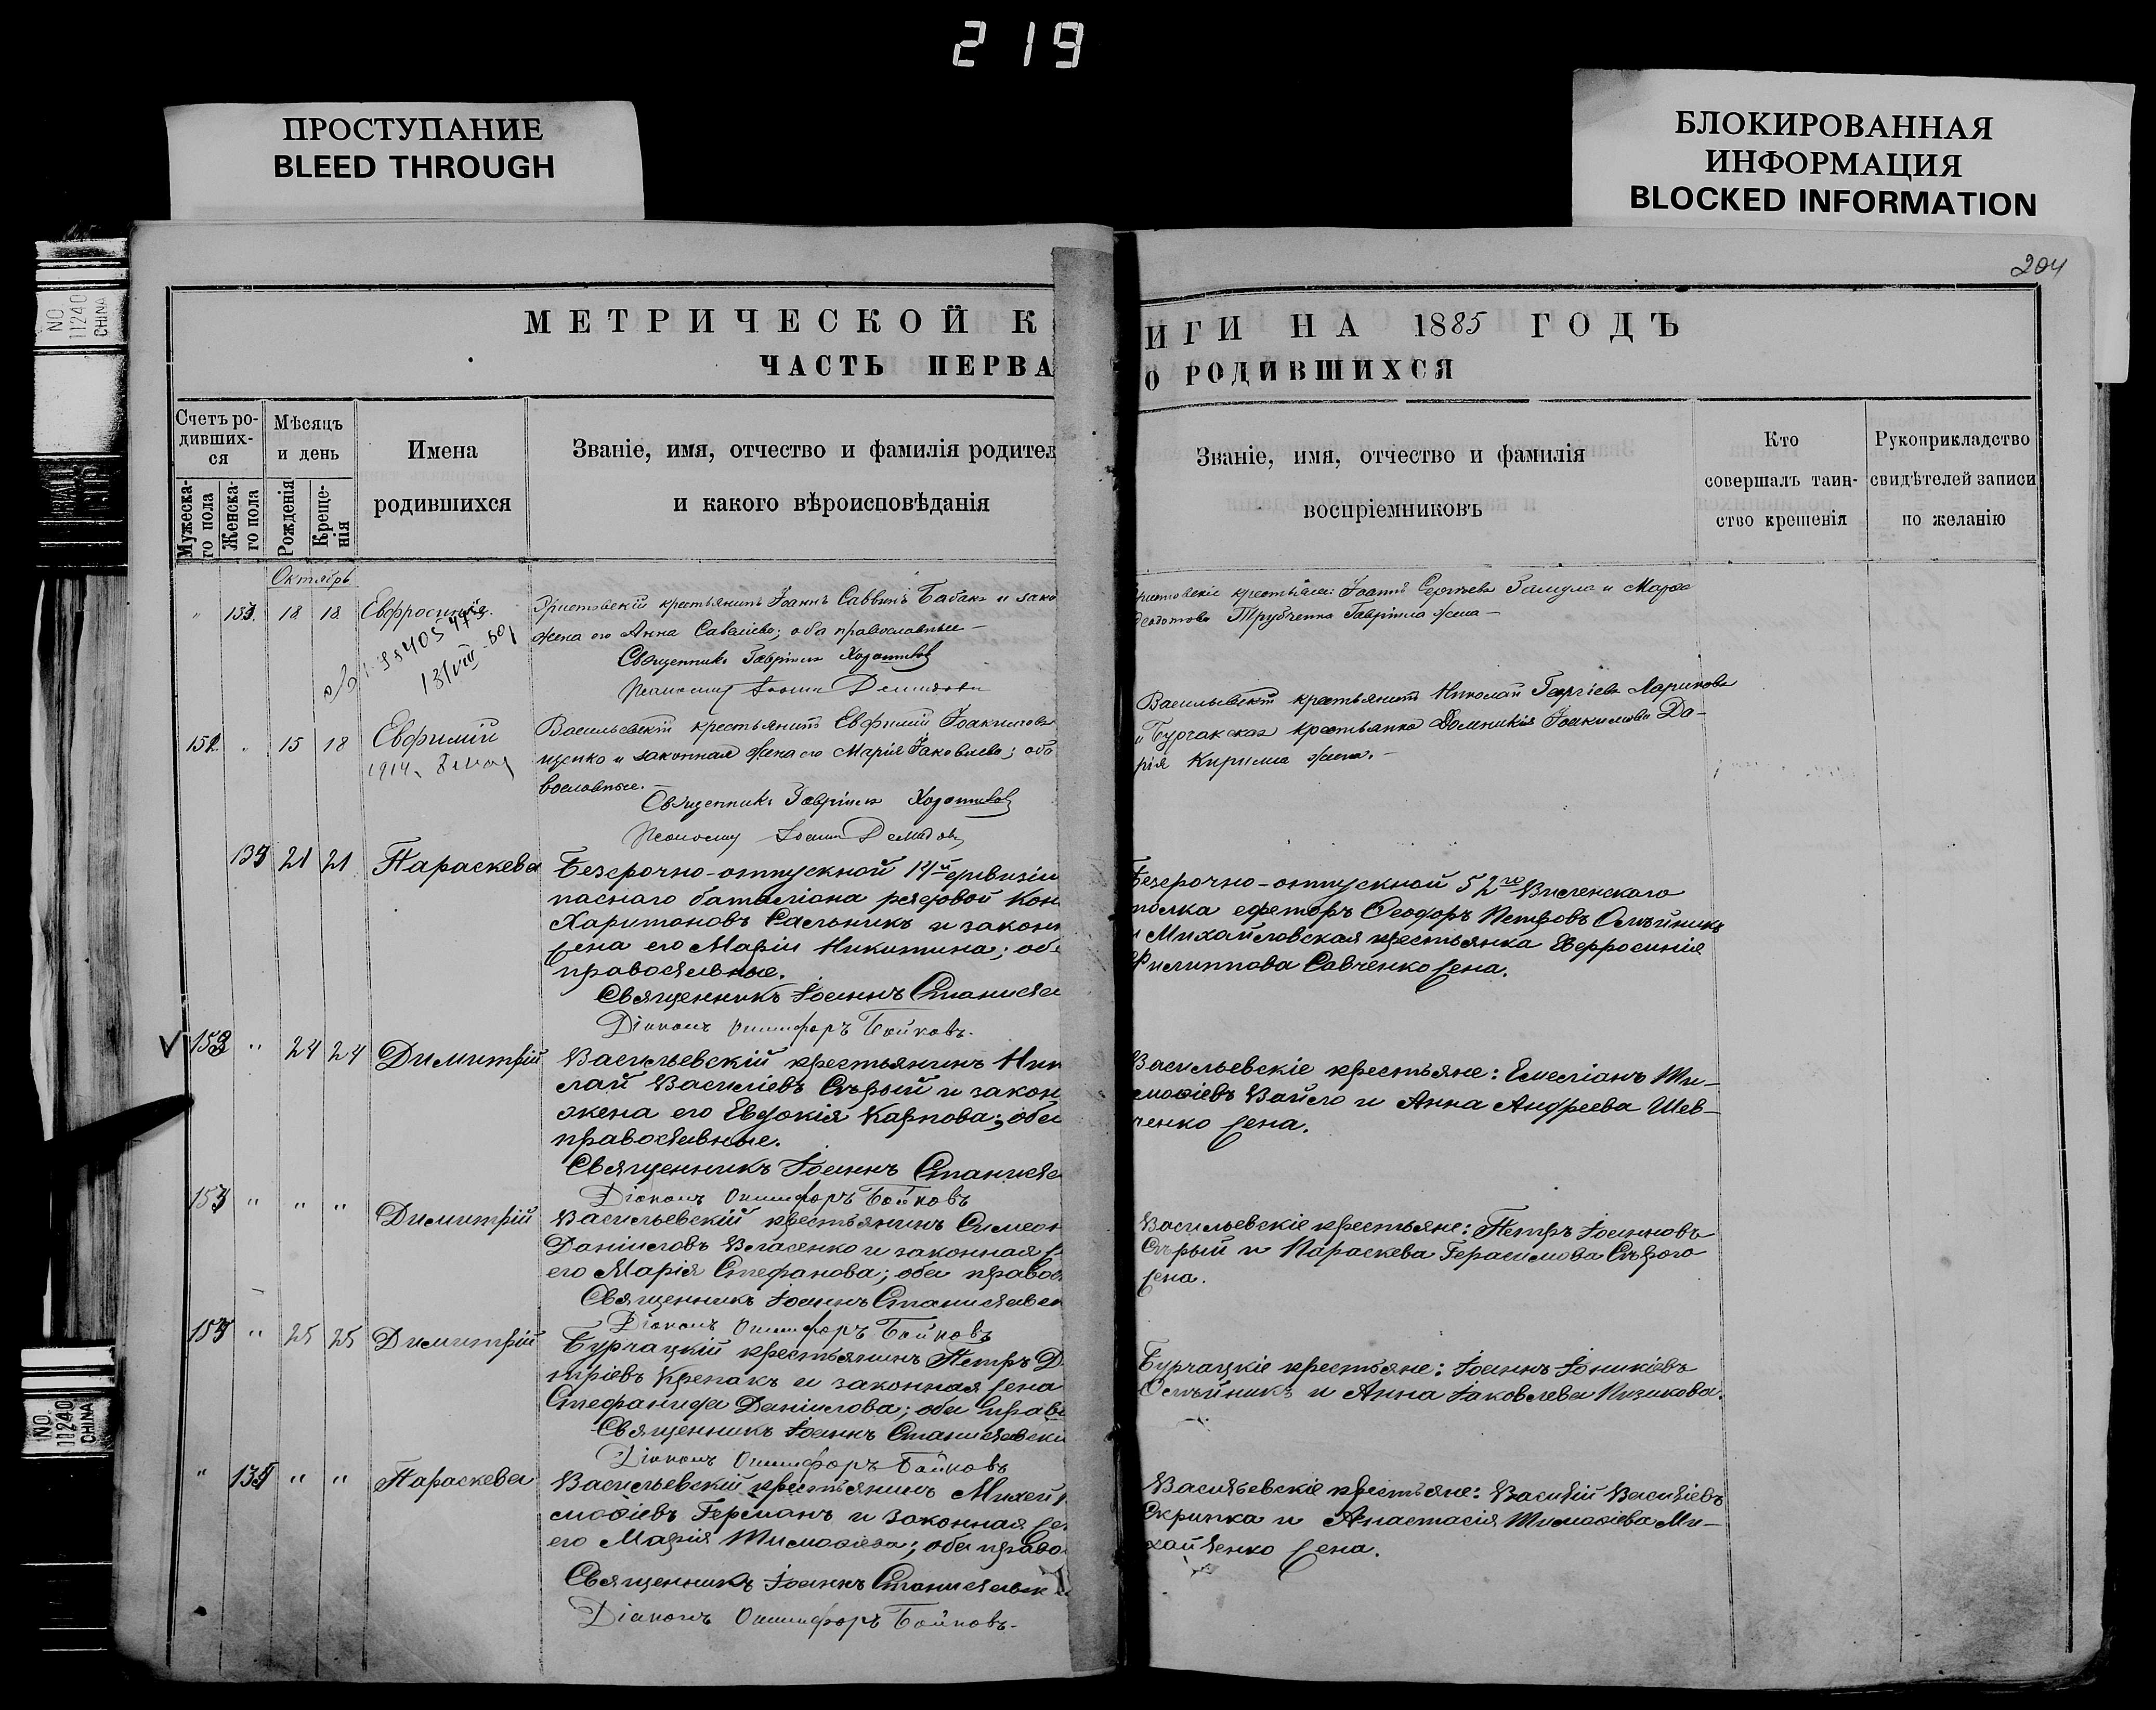 219
ПРОСТУПАНИЕ
BLEED THROUGH
БЛОКИРОВАННАЯ
ИНФОРМАЦИЯ
BLOCKED INFORMATION
NO
11240
CHINA
204
МЕТРИЧЕСКОЙ К
ЧАСТЬ ПЕРВА
ИГИ НА 1885 ГОДЪ
О РОДИВШИХСЯ
Счетъ ро-
дивших-
ся
Мужеска-
го пола
Женска-
го пола
Мѣсяцъ
и день
Рожденія
Креще-
нія
Имена
родившихся
Званіе, имя, отчество и фамилія родител
и какого вѣроисповѣданія
Званіе, имя, отчество и фамилія
воспріемниковъ
Кто
совершалъ таин-
ство крещенія
Рукоприкладство
свидѣтелей записи
по желанію
Октябрь
" 18 18 Евфросинія.
крестьянинъ Іоаннъ Саввинъ Бабакъ и зако
жена его Анна Савелиева; оба православные —
Священникъ Гавріилъ
крестьяне: Іоаннъ Сергѣевъ и Марѳа
Трубченко Гавріила жена —
152. " 15 18 Евфимій
1914
Васильевскій крестьянинъ Евфимій Іоакимовъ
ценко и законная жена его Марія Іаковлева; оба
вославные. —
Священникъ Гавріилъ
Васильевскій крестьянинъ Николай Георгіевъ Лариковъ
и Бурчакская крестьянка Домникія Іоакимова До-
рія Кирилла жена. —
21 21 Параскева
Безсрочно-отпускной
паснаго баталіона рядовой Кон
Харитоновъ Сальникъ и закон
жена его Марія Никитина; оба
православные.
Священникъ Іоаннъ Станислав
Діаконъ Онисифоръ Бойковъ.
Безсрочно-отпускной 52го Виленскаго
полка ефреторъ Ѳеодоръ Петровъ Олѣйникъ
и Михайловская крестьянка Евфросинія
Филиппова Савченко жена.
V 153 " 24 24 Димитрій
Васильевскій крестьянинъ Ник
лай Василіевъ Сѣрый и закон
жена его Евдокія Карпова; оба
православные.
Священникъ Іоаннъ Станислав
Діаконъ Онисифоръ Бойковъ
Васильевскіе крестьяне: Емеліанъ Ти-
моѳіевъ Вайло и Анна Андреева Шев-
ченко жена.
" " " Димитрій
Васильевскій крестьянинъ Симеон
Даніиловъ Власенко и законная ж
его Марія Стефанова; оба правос
Священникъ Іоаннъ Станиславск
Діаконъ Онисифоръ Бойковъ
Васильевскіе крестьяне: Петръ Іоанновъ
Сѣрый и Параскева Герасимова Сѣраго
жена.
" 25 25 Димитрій
Бурчацкій крестьянинъ Петръ Д
митріевъ Крепакъ и законная жена
Стефанида Даніилова; оба право
Священникъ Іоаннъ Станиславски
Діаконъ Онисифоръ Бойковъ
Бурчацкіе крестьяне: Іоаннъ Іоникіевъ
Олѣйникъ и Анна Іаковлева Пизикова.
" " " Параскева
Васильевскій крестьянинъ Михей
моѳіевъ Германъ и законная же
его Марія Тимоѳіева; оба право
Священникъ Іоаннъ Станиславск
Діаконъ Онисифоръ Бойковъ.
Васильевскіе крестьяне: Василій Василіевъ
Скрипка и Анастасія Тимоѳіева Ми-
хайленко жена.
NO.
11240
CHINA